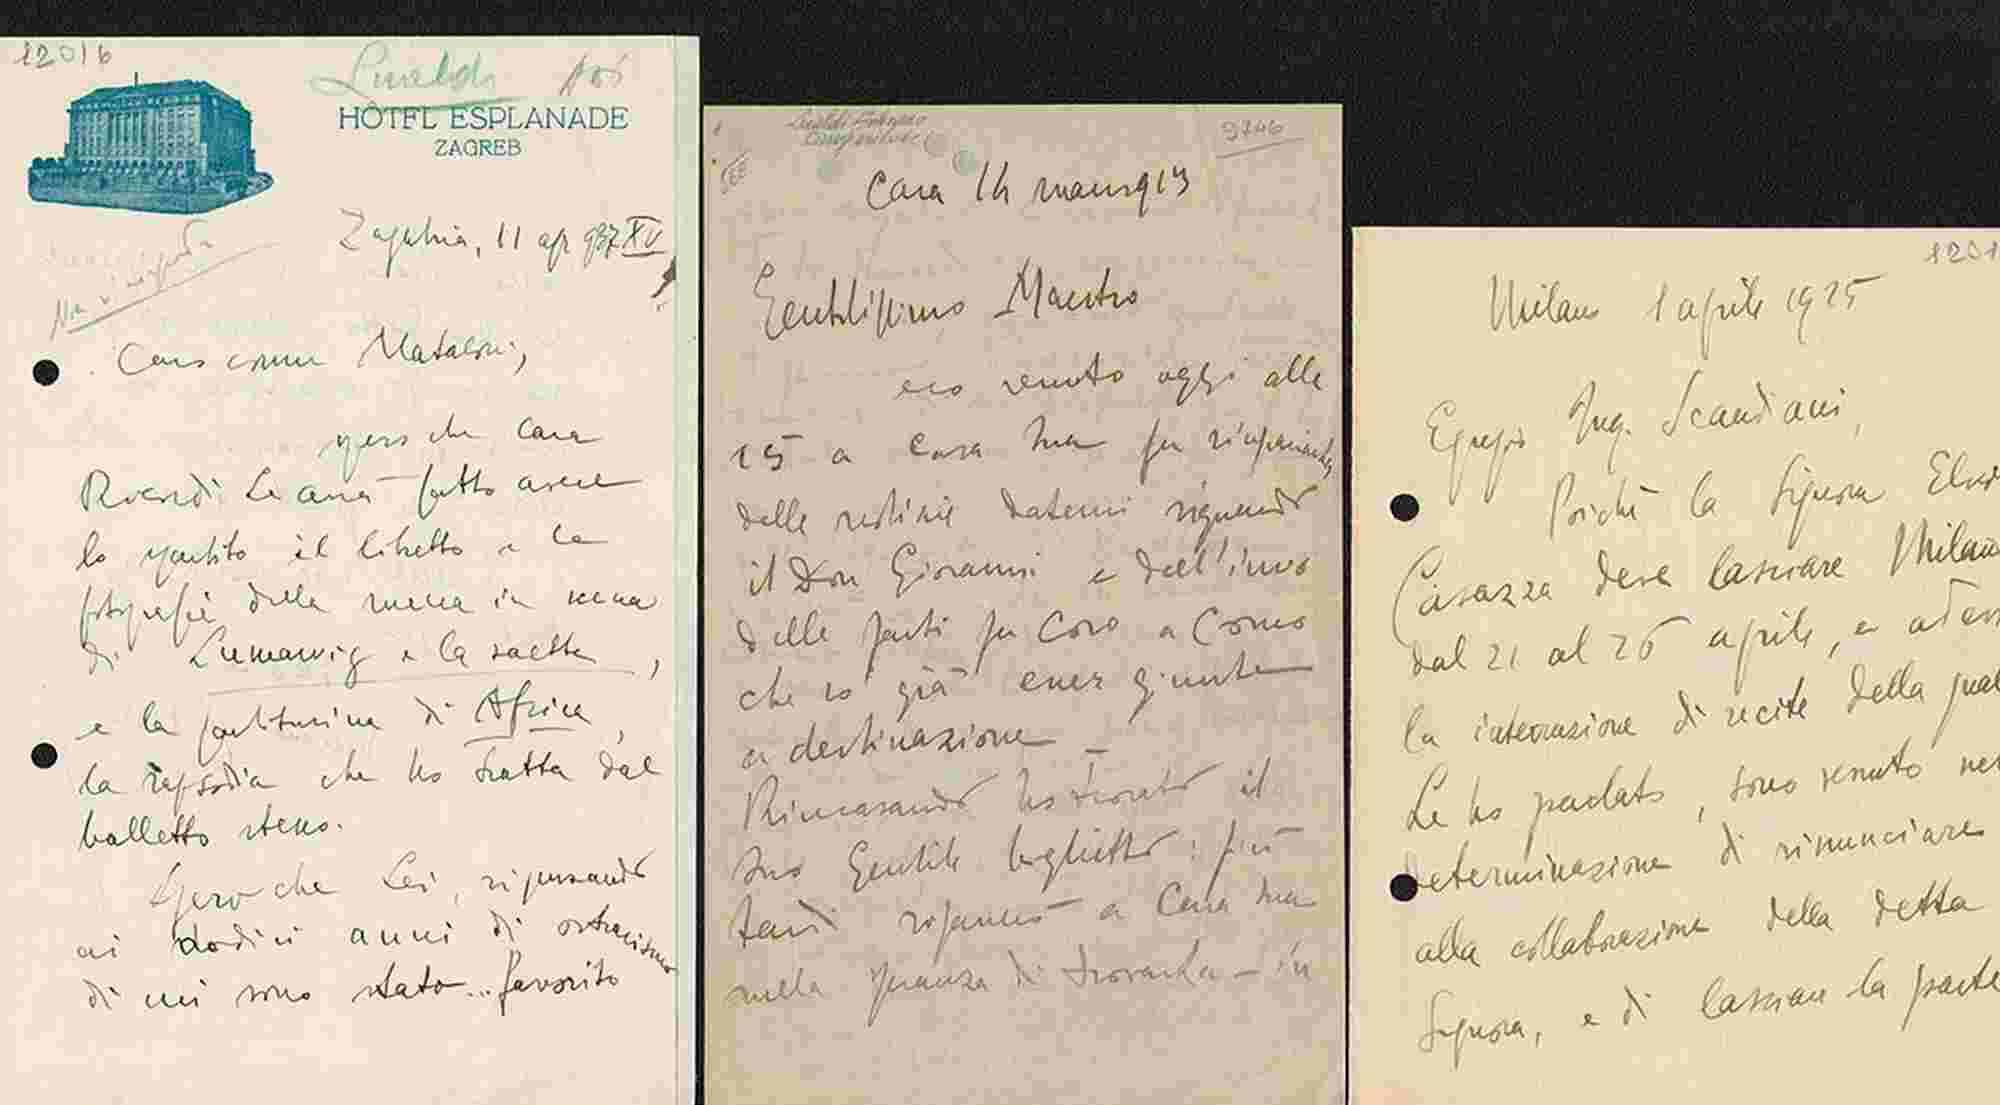 12016
Lualdi
HÔTEL ESPLANADE
ZAGREB
Zagabria, 11 apr 937 XV
Caro comm Mataloni,
spero che Casa
Ricordi Le avrà fatto avere
lo spartito il libretto e la
fotografie della messa in scena
di Lumawig e la saetta,
e la partiturina di Africa,
la rapsodia che ho tratta dal
balletto stesso.
Spero che Lei, ripensando
ai dodici anni di ostracismo
di cui sono stato... favorito
Lualdi Adriano
Compositore
9746
Casa 14 marzo 913
Gentilissimo Maestro
ero venuto oggi alle
15 a casa Sua per
delle notizie datemi riguardo
il Don Giovanni e dell'invio
delle parti per Coro a Como
che so già esser giunte
a destinazione _
Rincasando ho trovato il
Suo gentile biglietto: più
tardi a Casa Sua
nella speranza di trovarla – in
1201
Milano 1 aprile 1925
Egregio Ing. Scandiani,
Poichè la Signora
Casazza deve lasciare Milano
dal 21 al 26 aprile, e
la di recite della
Le ho parlato, sono venuto
determinazione di rinunciare
alla collaborazione della detta
Signora, e di lasciare la parte